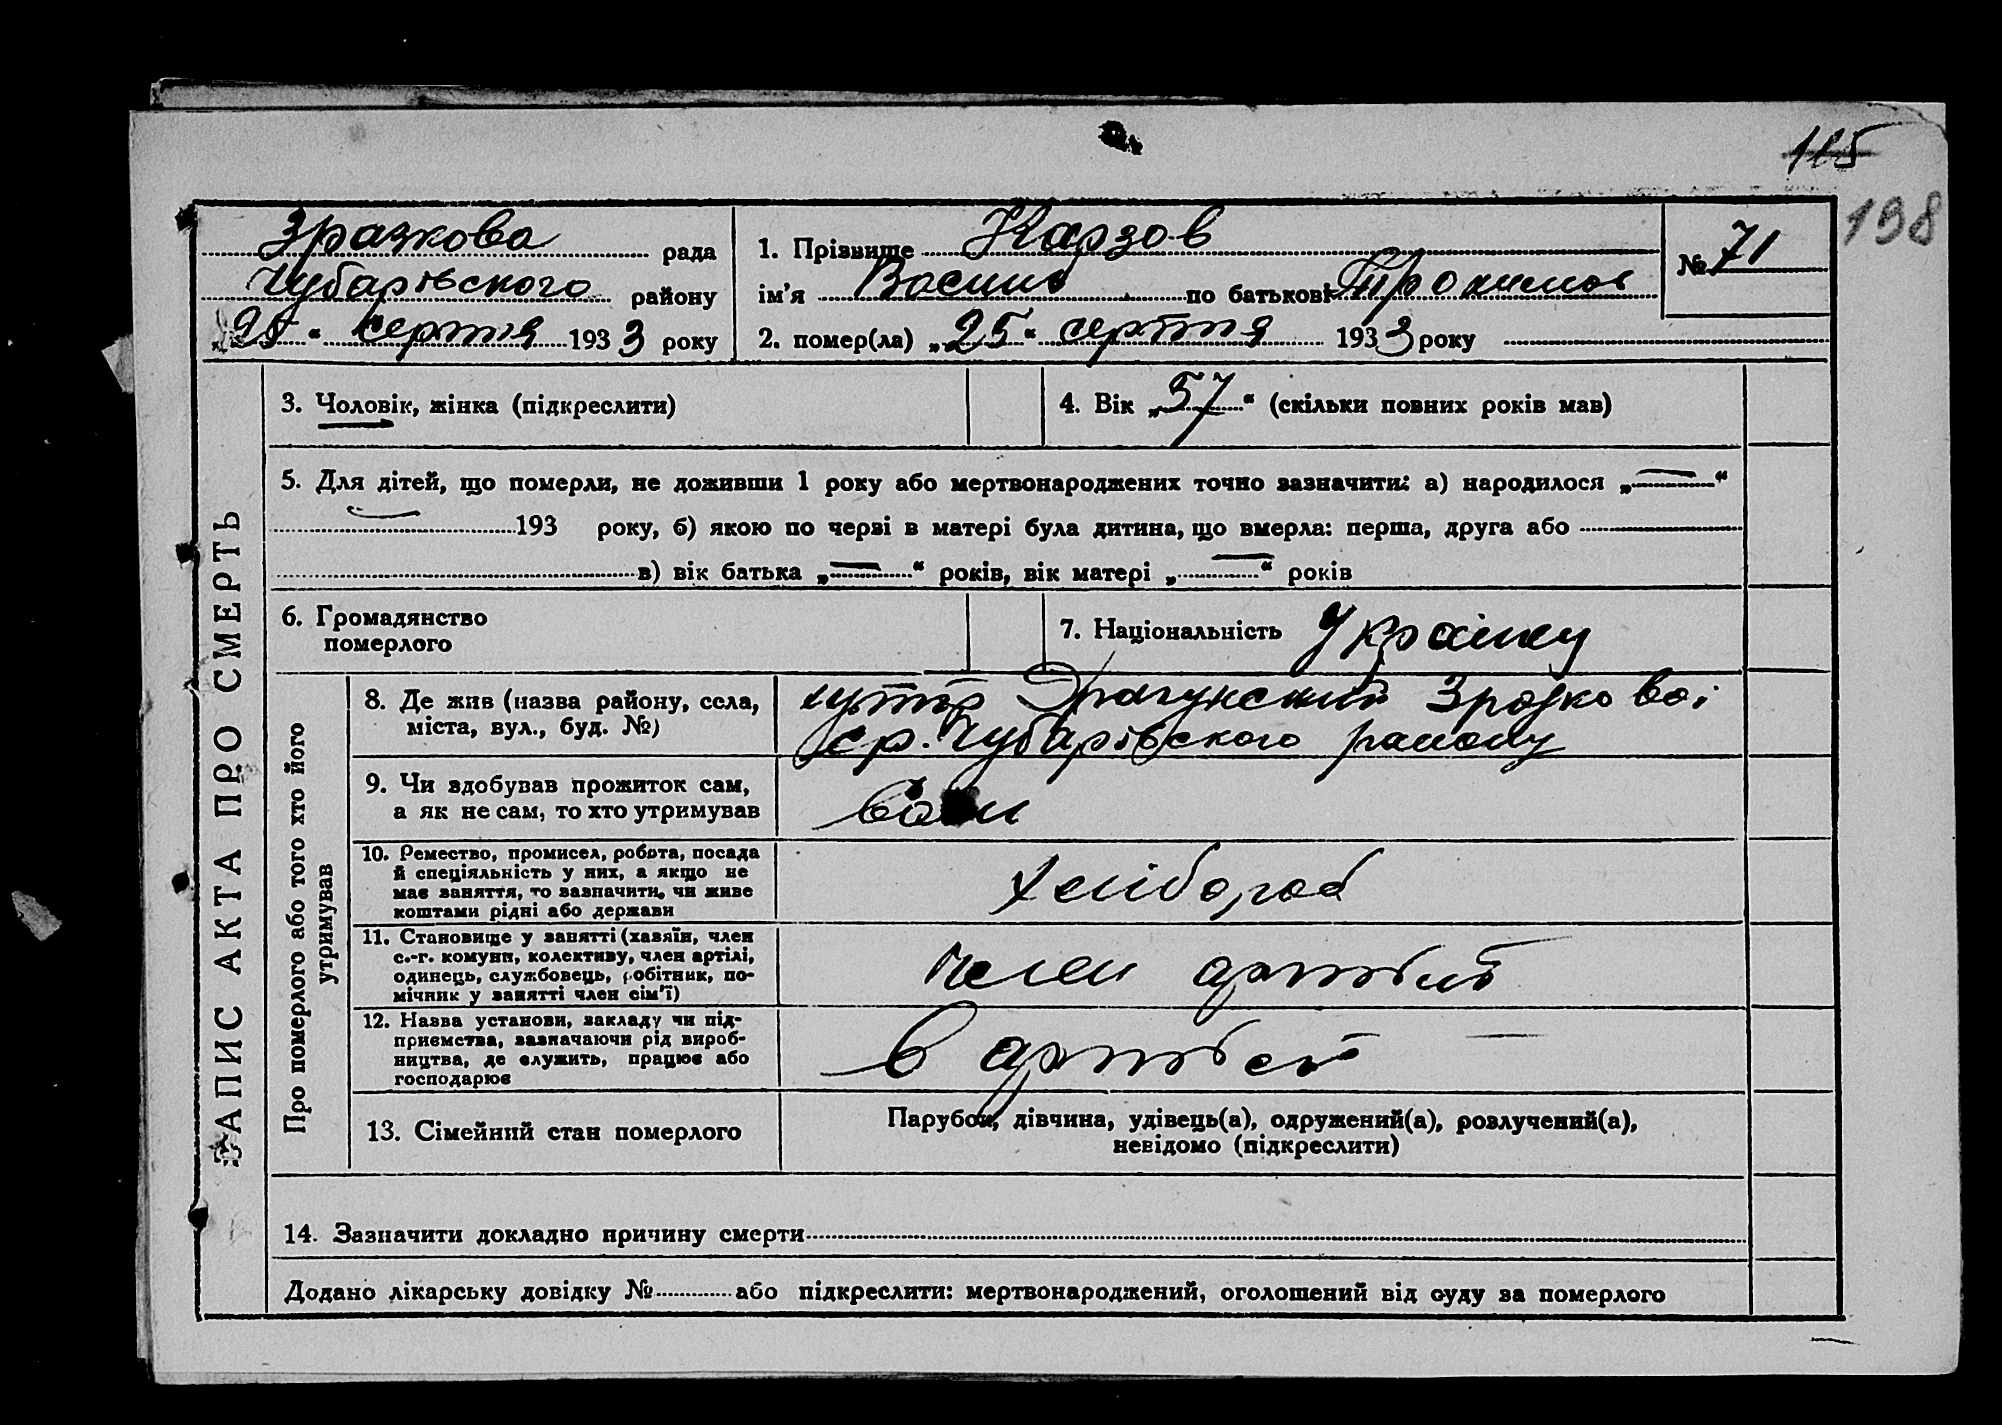 115
198
Зразкова рада
Чубарівського району
„25“ серпня 1933 року
1. Прізвище Карзов
ім’я Василь по батькові Трохимов
2. помер(ла) „25“ серпня 1933 року
№ 71
ЗАПИС АКТА ПРО СМЕРТЬ
3. Чоловік, жінка (підкреслити)
4. Вік „57“ (скільки повних років мав)
5. Для дітей, що померли, не доживши 1 року або мертвонароджених точно зазначити: а) народилося „—“
193 року, б) якою по черзі в матері була дитина, що вмерла: перша, друга або
в) вік батька „—“ років, вік матері „—“ років
6. Громадянство
померлого
7. Національність
Про померлого або того хто його
утримував
8. Де жив (назва району, села,
міста, вул., буд. №)
хутір Драгунский Зразковоі
с.р. Чубарівского району
9. Чи здобував прожиток сам,
а як не сам, то хто утримував
10. Ремество, промисел, робота, посада
й спеціяльність у них, а якщо не
має заняття, то зазначити, чи живе
коштами рідні або держави
хлібороб
11. Становище у занятті (хазяїн, член
с.-г. комуни, колективу, член артілі,
одинець, службовець, робітник, по-
мічник у занятті член сім’ї)
член артілі
12. Назва установи, закладу чи під-
приємства, зазначаючи рід вироб-
ництва, де служить, працює або
господарює
в артілі
13. Сімейний стан померлого
Парубок, дівчина, удівець(а), одружений(а), розлучений(а),
невідомо (підкреслити)
14. Зазначити докладно причину смерти
Додано лікарську довідку № або підкреслити: мертвонароджений, оголошений від суду за померлого